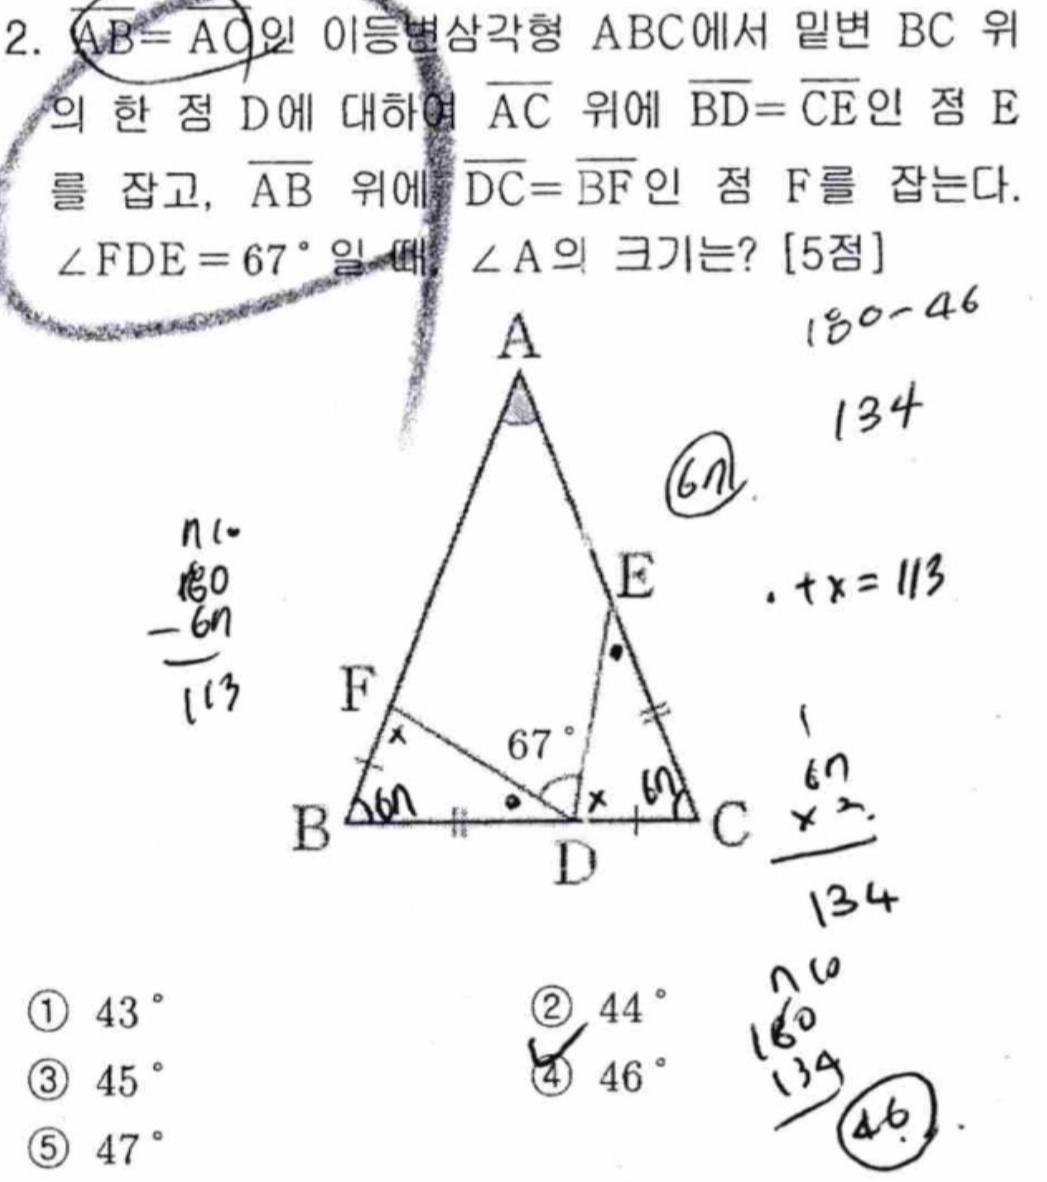 2. AB=AC인 이등변삼각형 ABC에서 밑변 BC 위
의 한 점 D에 대하여 AC 위에 BD=CE인 점 E
를 잡고, AB 위에 DC=BF인 점 F를 잡는다.
∠FDE=67°일 때, ∠A의 크기는? [5점]
180-46
134
A
67
7 10
180
-67
113
E
. + x = 113
F
x
67°
x
67
67
B
D
C
1
67
x 2.
134
7 10
180
134
46.
① 43°
② 44°
③ 45°
④ 46°
⑤ 47°